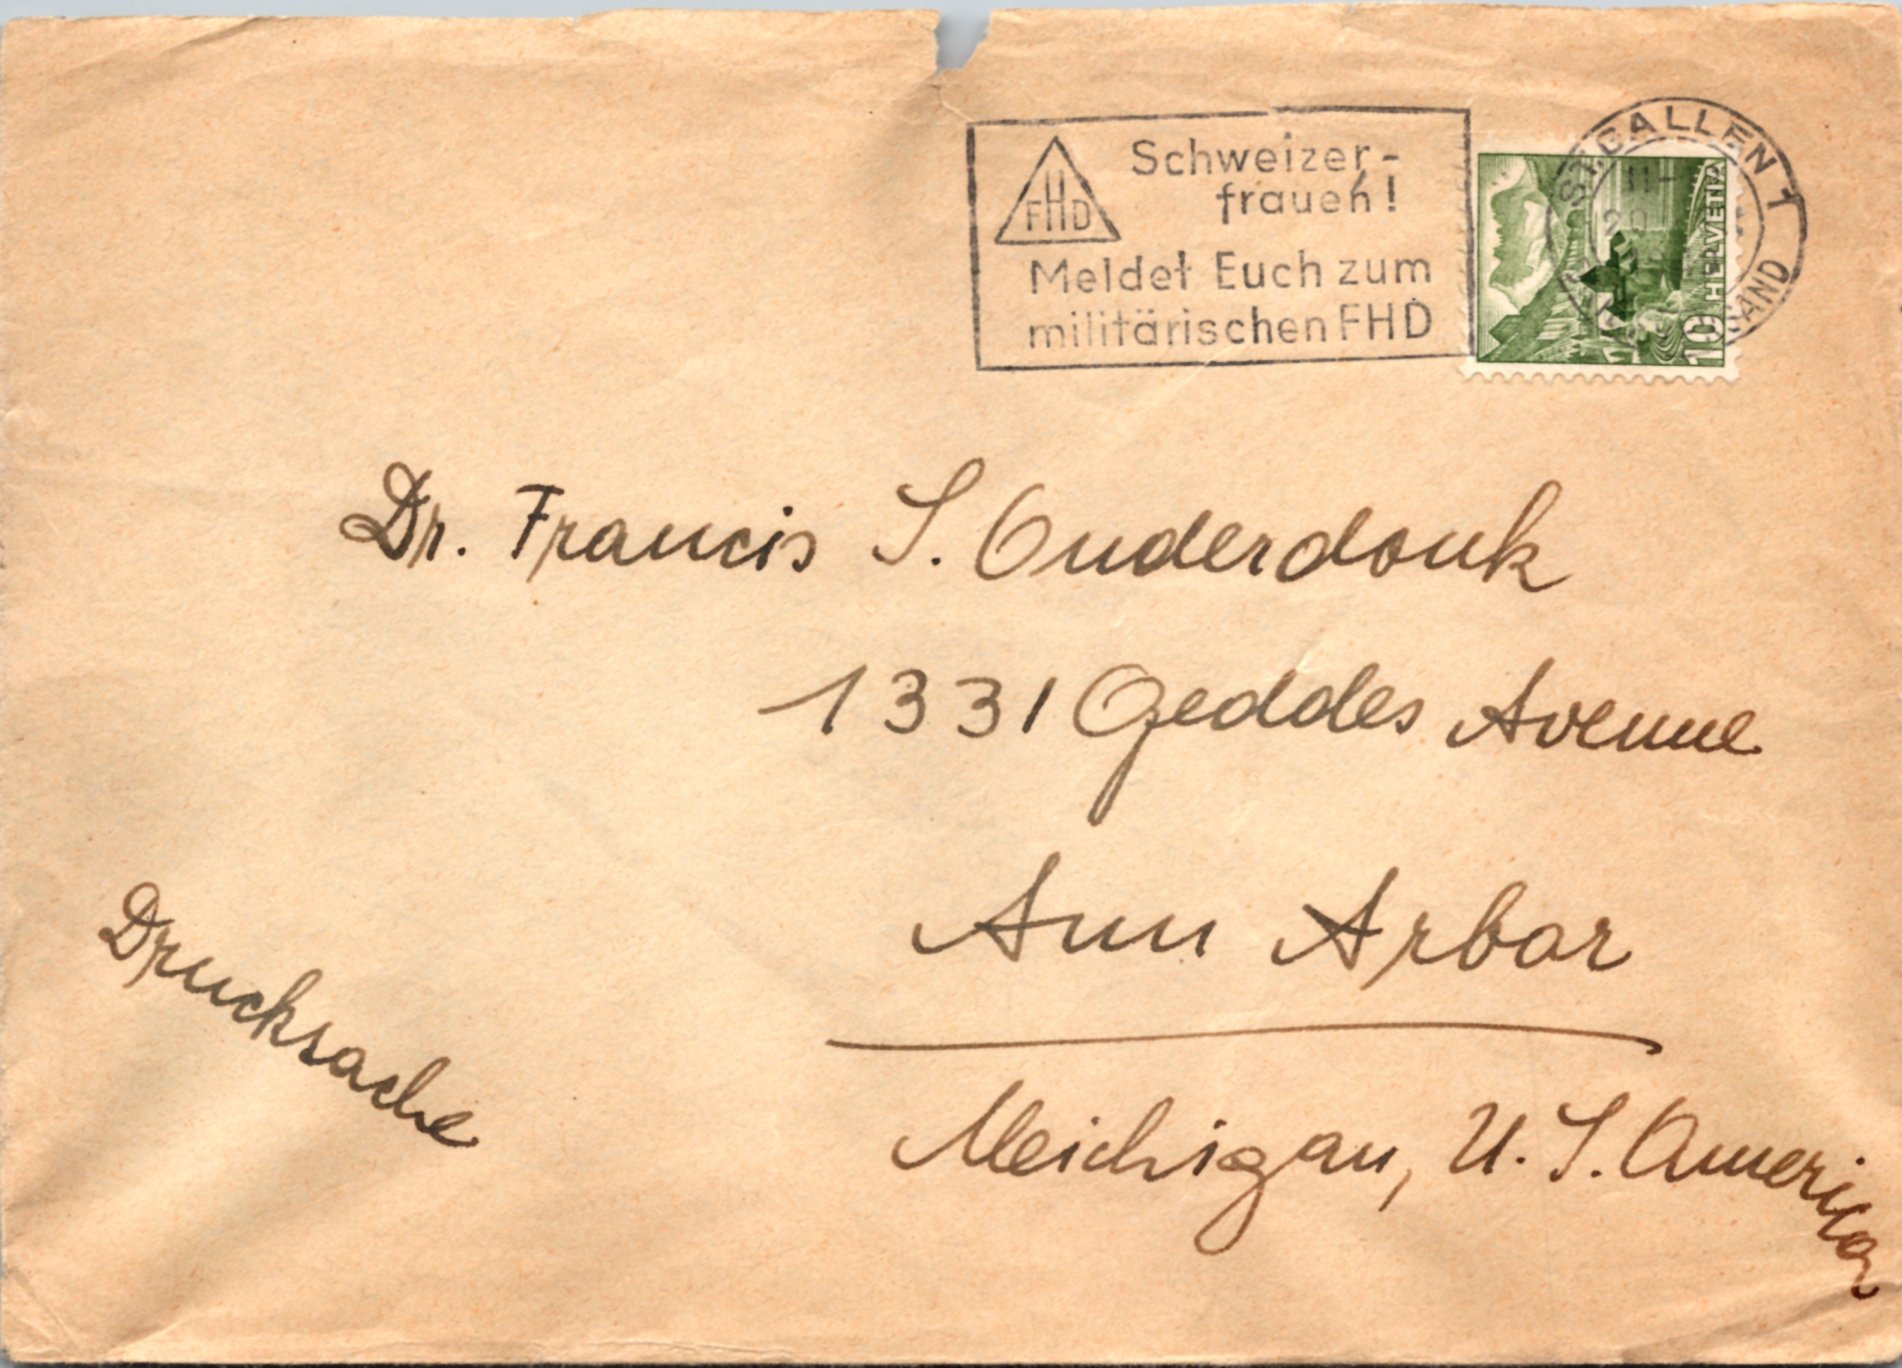 FHD
Schweizer-
frauen!
Meldet Euch zum
militärischen FHD
ST.GALLEN 1
HELVETIA
10
Dr. Francis S. Onderdonk
1331 Geddes Avenue
Ann Arbor
Meichigan, U. S. America
Drucksache